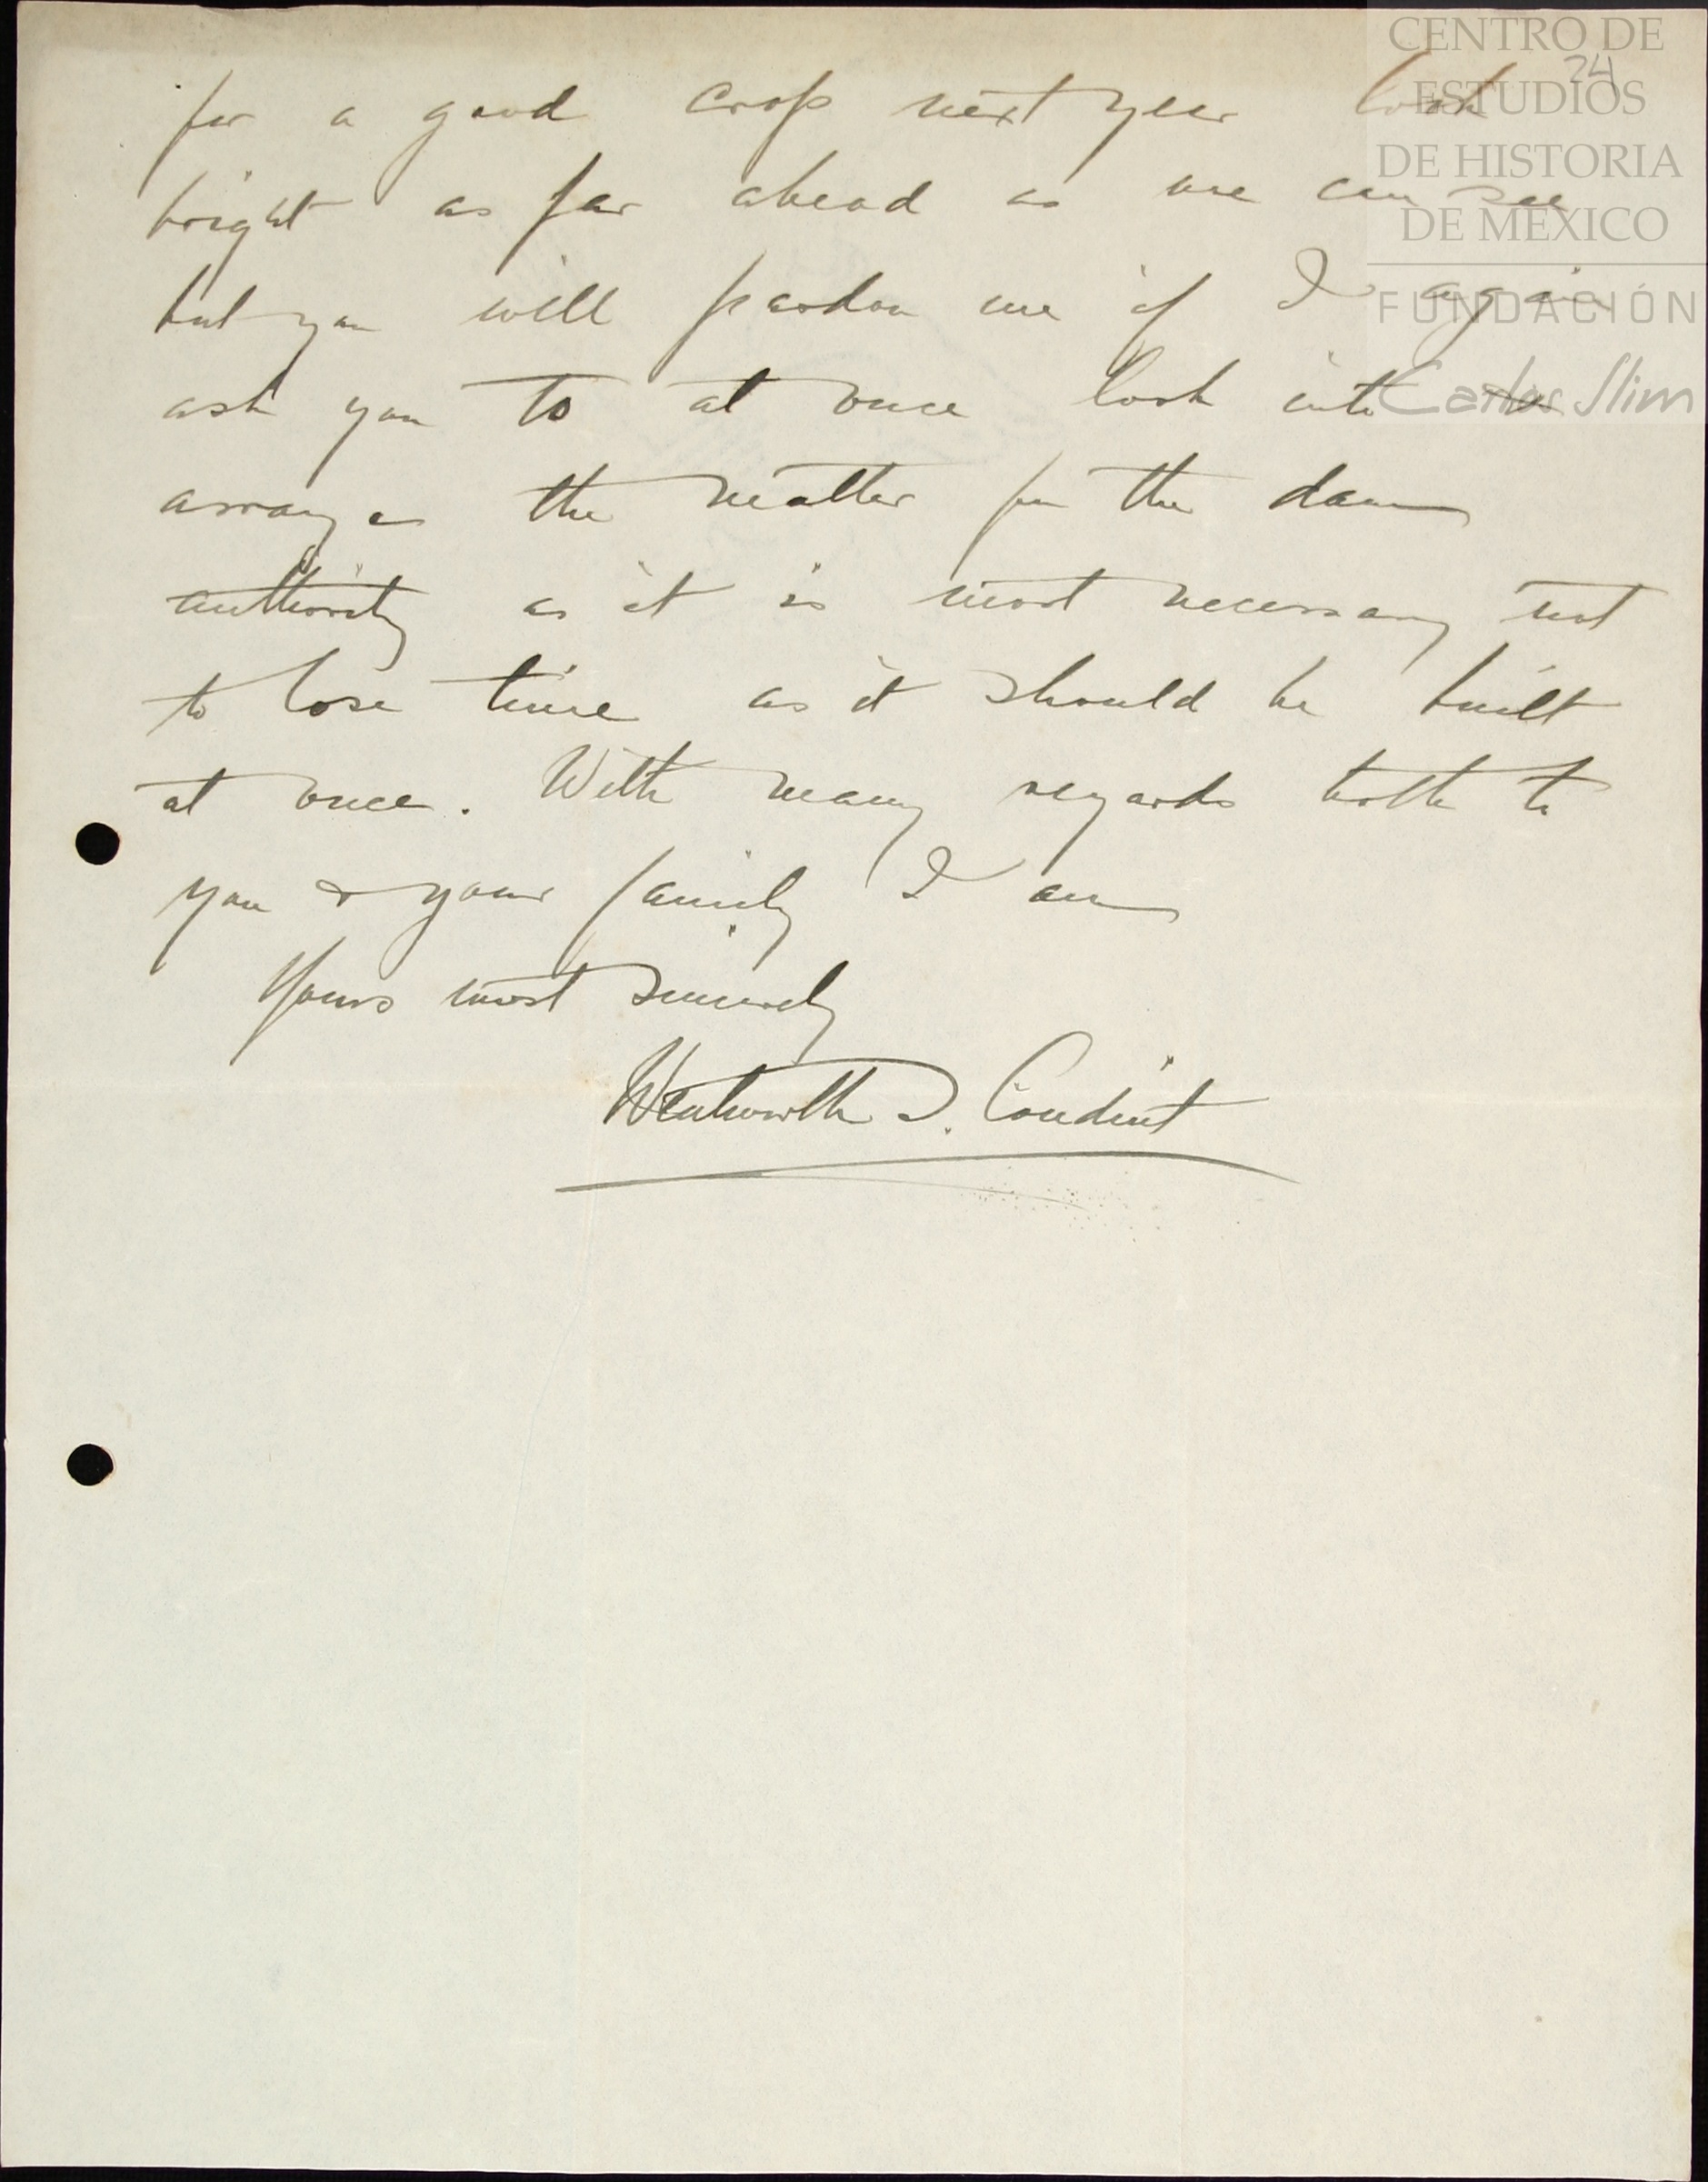 CENTRO DE
ESTUDIOS
DE HISTORIA
DE MÉXICO
FUNDACIÓN
Carlos Slim
24
for a good crop next year look
bright as far ahead as we can see
but you will pardon me if I again
ask you to at once look into &
arrange the matter for the dam
authority as it is most necessary not
to lose time as it should be built
at once. With many regards both to
you & your family I am
Yours most sincerely
Wentworth S. Conduit